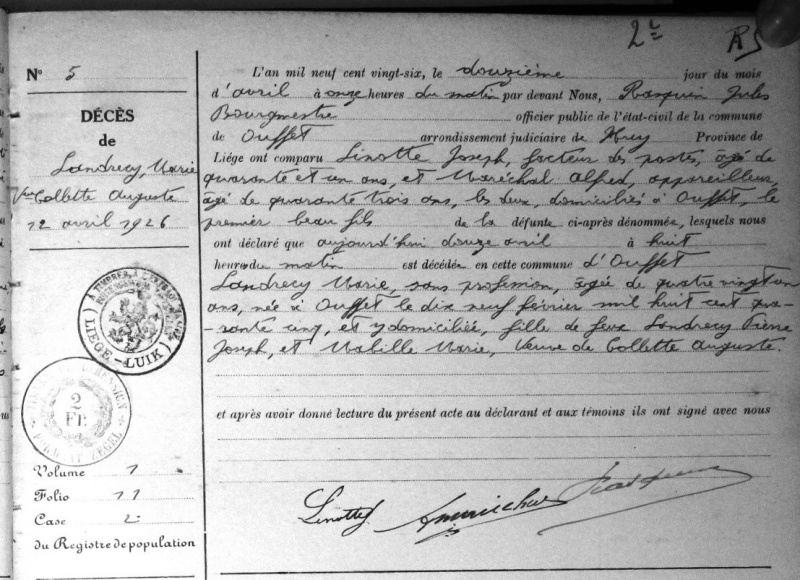 2
L'an mil neuf cent vingt-six, le douzième jour du mois
d'avril à onze heures du matin par devant Nous, Rasquin Jules
Bourgmestre officier public de l'état-civil de la commune
de Ouffet arrondissement judiciaire de Huy Province de
Liége ont comparu Linotte Joseph, facteur des postes, âgé de
quarante et un ans, et Maréchal Alfred, appareilleur,
âgé de quarante trois ans, les deux, domiciliés à Ouffet, le
premier beau fils de la défunte ci-après dénommée, lesquels nous
ont déclaré que aujourd'hui douze avril à huit
heures du matin est décédée en cette commune d'Ouffet
Landrecy Marie, sans profession, âgée de quatre vingt un
ans, née à Ouffet le dix neuf février mil huit cent qua-
-rante cinq, et y domiciliée, fille de feux Landrecy Pierre
Joseph, et Mabille Marie, Veuve de Collette Auguste.
et après avoir donné lecture du présent acte au déclarant et aux témoins ils ont signé avec nous
Linotte J
No 5
DÉCÈS
de
Landrecy, Marie
Vve Collette Auguste
12 avril 1926
(LIÉGE-LUIK)
2
FR.
Volume 1
Folio 11
Case 2
du Registre de population